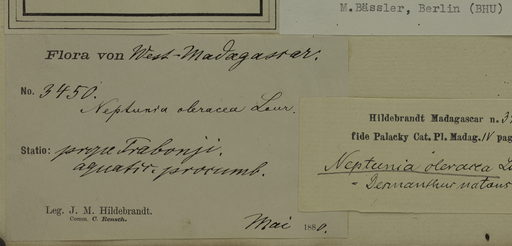 M. Bässler, Berlin (BHU)
Flora von West-Madagascar.
No. 3450.
Neptunia oleracea Lour.
Statio: prope Trabonji.
aquatic. procumb.
Leg. J. M. Hildebrandt.
Comm. C. Rensch.
Mai 1880.
Hildebrandt Madagascar n. 34
fide Palacky Cat. Pl. Madag. IV pag
Neptunia oleracea Lo
= Desmanthus natans